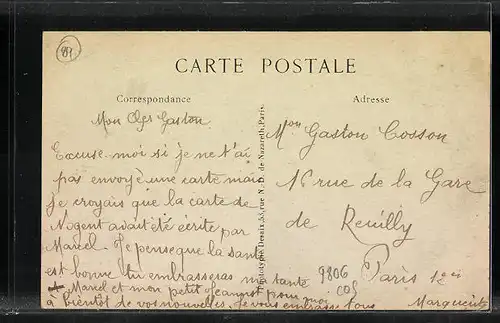 89
CARTE POSTALE
Correspondance
Adresse
Mon Gaston
Excuse-moi si je ne t'ai
pas envoyé une carte mais
je croyais que la carte de
Nogent avait été écrite par
Marcel. Je pense que la santé
est bonne tu embrasseras ma tante
Marcel et mon petit Jeannot pour moi
à bientôt de vos nouvelles. Je vous embrasse tous
Marguerite
Phototypie Desaix, 33, rue N.-D. de Nazareth, Paris.
Mon Gaston Cosson
16 rue de la Gare
de Reuilly
Paris 12e
9806
COS